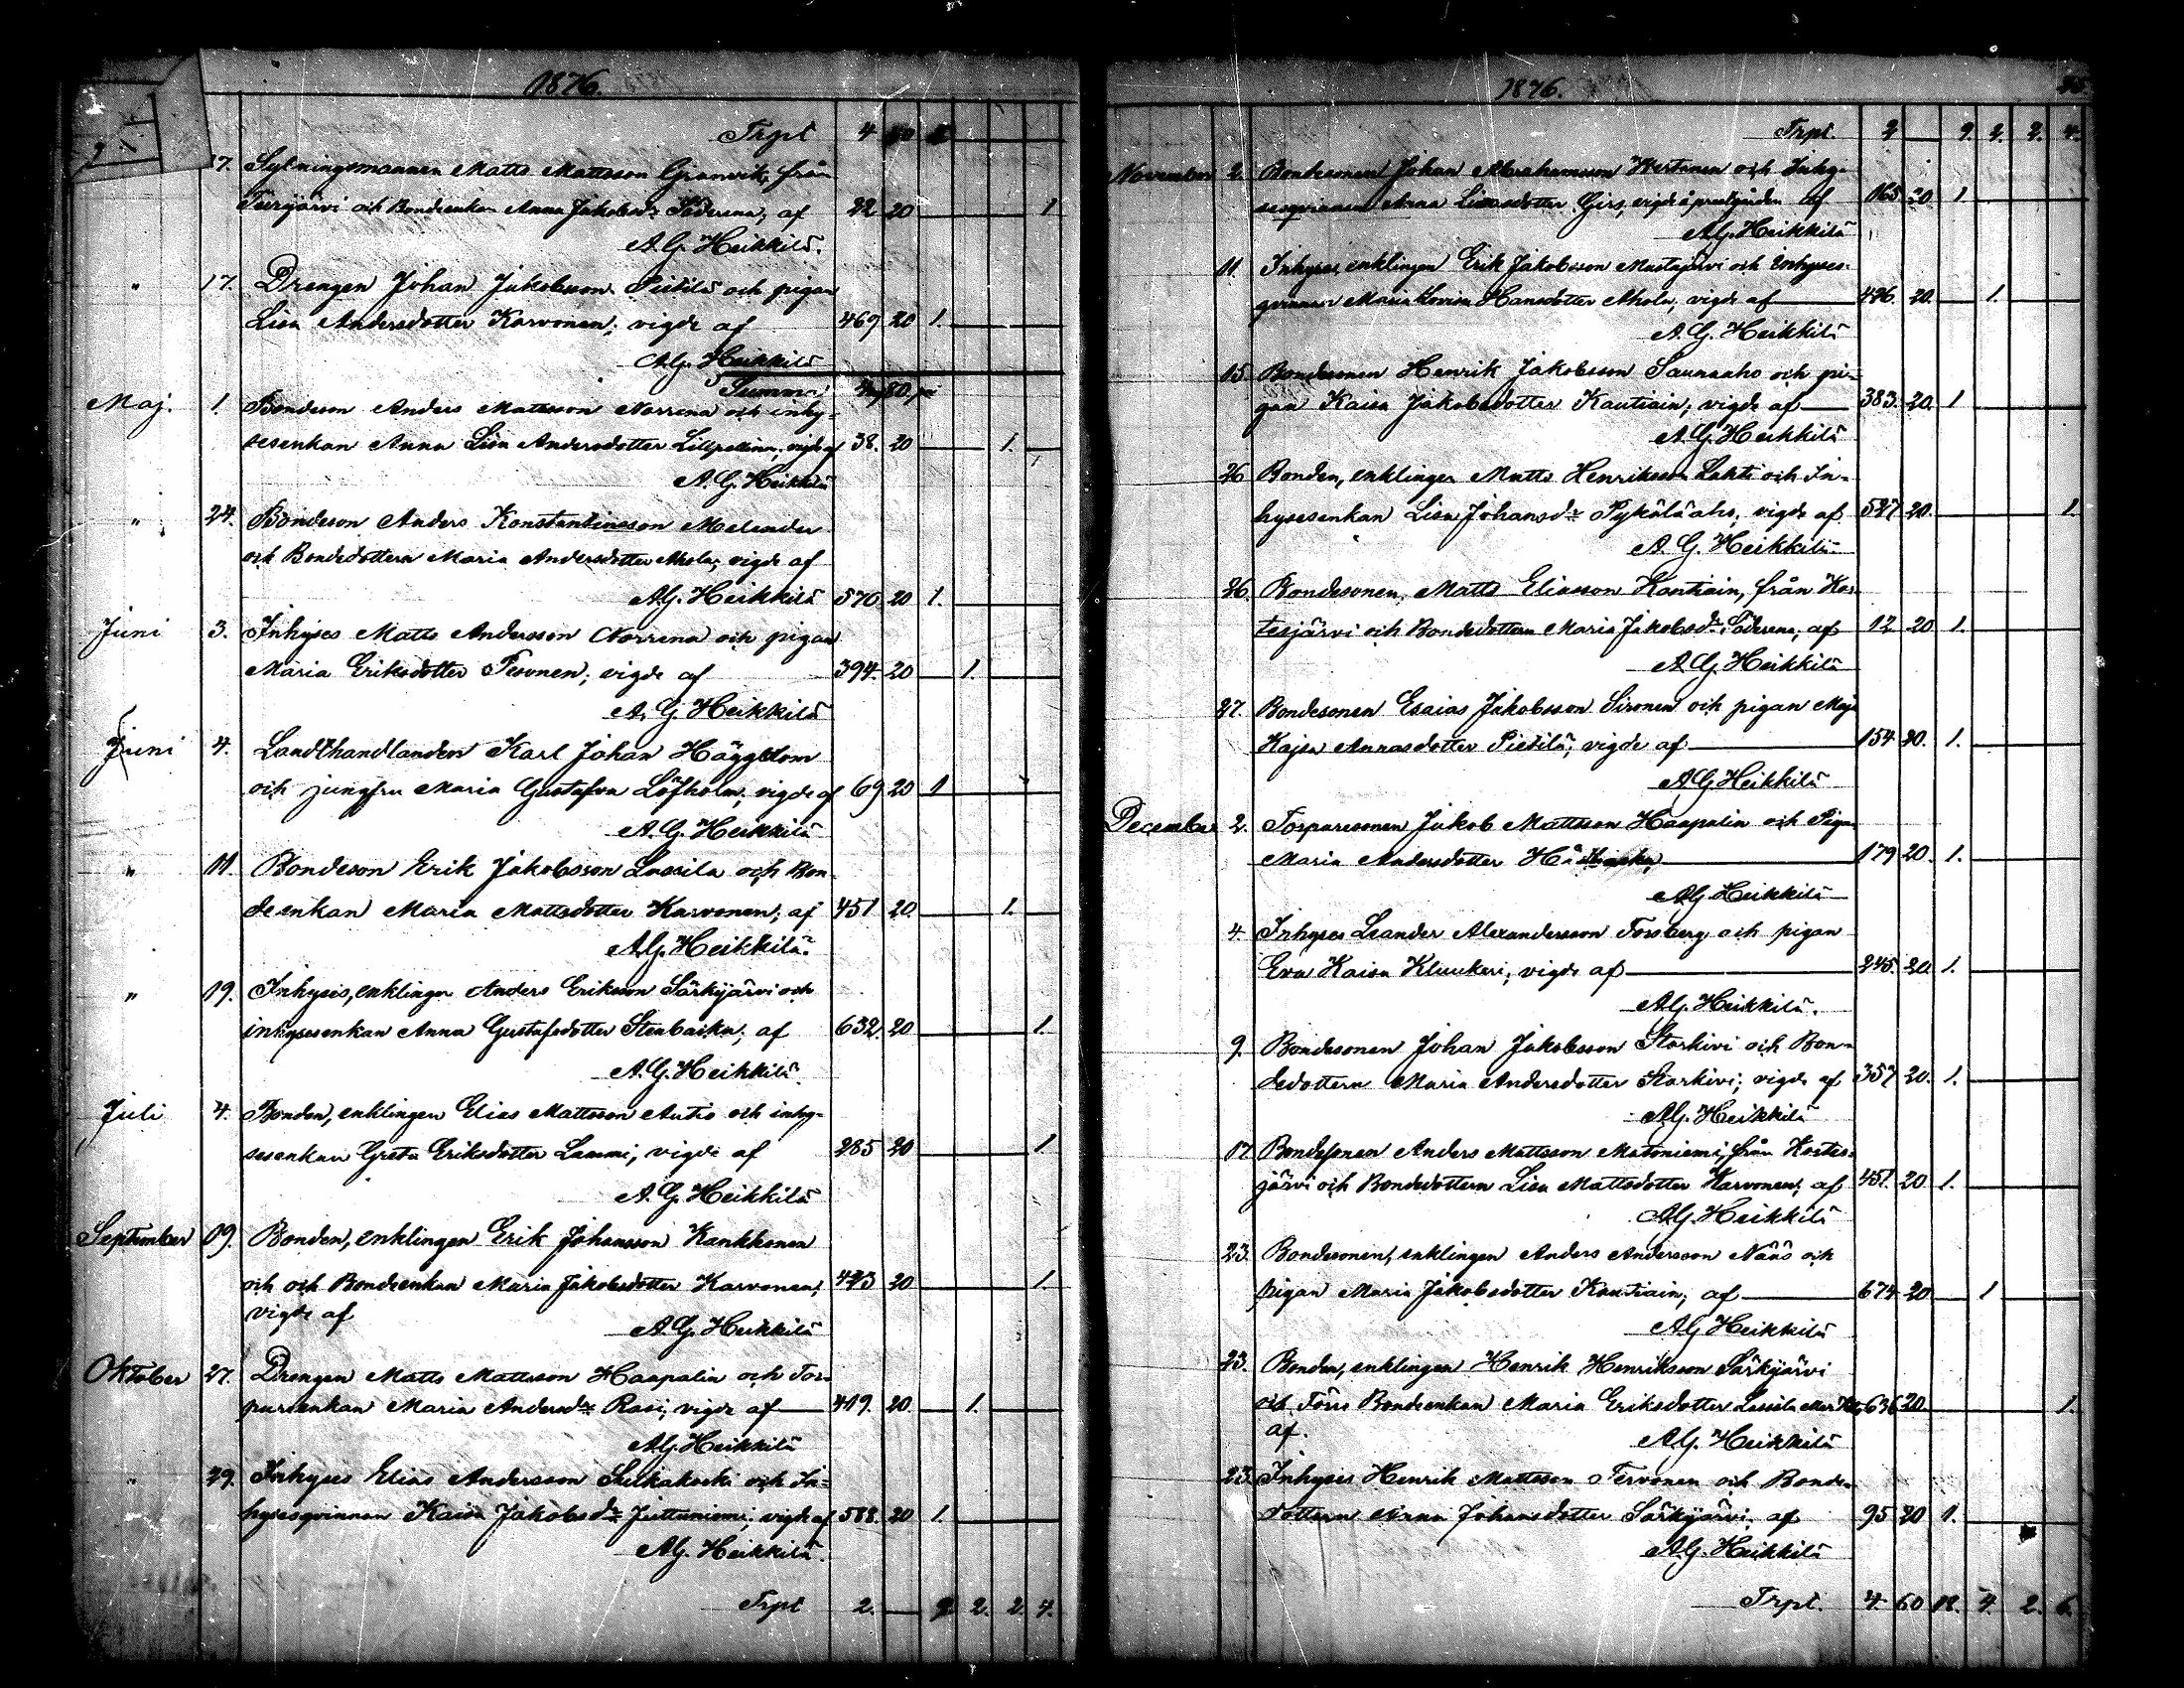 1876.
Trpt 4 80
17. Sytningsmannen Matts Mattsson Granvik, från
Terijärvi och Bondeenkan Anna Jakobsdr Söderena, af 22 20 1
A.G. Heikkilä.
" 17. Drengen Johan Jakobsson Pietilä och pigan
Lisa Andersdotter Karvonen; vigde af 469 20 1.
A.G. Heikkilä
Summa 80 pi
Maj. 1. Bondeson Anders Mattsson Norrena och inhy-
sesenkan Anna Lisa Andersdotter vigde af 38. 20 1.
A.G. Heikkilä
" 24. Bondeson Anders Konstantinsson Melender
och Bondedottern Maria Andersdotter Ahola; vigde af
A.G. Heikkilä 570 20 1.
Juni 3. Inhyses Matts Andersson Norrena och pigan
Maria Eriksdotter Pesonen; vigde af 394. 20 1.
A.G. Heikkilä
Juni 4. Landthandlanden Karl Johan Häggblom
och jungfru Maria Gustafva Löfholm; vigde af 69 20 1
A.G. Heikkilä
" 11. Bondeson Erik Jakobsson Lassila och Bon-
deenkan Maria Mattsdotter Karvonen; af 451 20. 1.
A.G. Heikkilä.
" 19. Inhyses, enklingen Anders Eriksson Särkijärvi och
inhysesenkan Anna Gustafsdotter Stenbacka; af 632. 20 1.
A.G. Heikkilä.
Juli 4. Bonden, enklingen Elias Mattsson Autio och inhy-
sesenkan Greta Eriksdotter Lammi; vigde af 285 20 1.
A.G. Heikkilä
September 19. Bonden, enklingen Erik Johansson Kankkonen
och och Bondeenkan Maria Jakobsdotter Karvonen, 423 20 1.
vigde af A.G. Heikkilä
Oktober 27. Drengen Matts Mattsson Haapalin och Tor-
parenkan Maria Andersdr Rasi; vigde af 419. 20 1.
A.G. Heikkilä
" 29. Inhyses Elias Andersson och In-
hysesqvinnan Kaisa Jakobsdr Juttuniemi; vigde af 588. 20 1.
A.G. Heikkilä.
Trpt 2. — 9. 2. 2. 4.
1876.
Trpt. 2 9. 2. 2. 4.
November 2. Bondesonen Johan Abrahamsson Wertanen och Inhy-
sesqvinnan Anna Girs, vigde å prestgården af 165 20 1.
A.G. Heikkilä
11. Inhyses, enklingen Erik Jakobsson Mustajärvi och Inhyses-
qvinnan Maria Lovisa Hansdotter Ahola, vigde af 486. 20. 1.
A.G. Heikkilä
15. Bondesonen Henrik Jakobsson Saunaaho och pi-
gan Kaisa Jakobsdotter Kautiain; vigde af 383. 20. 1
A.G. Heikkilä
26 Bonden, enklingen Matts Henriksson Lahti och In-
hysesenkan Lisa Johansdr Pykäläaho, vigde af 527 20. 1.
A.G. Heikkilä
26. Bondesonen, Matts Eliasson Kautiain, från Kor-
tesjärvi och Bondedottern Maria Jakobsdr Söderena, af 12 20 1.
A.G. Heikkilä
27. Bondesonen Esaias Jakobsson Sironen och pigan Maja
Kajsa Pietilä; vigde af 154 20. 1.
A.G. Heikkilä
December 2. Torparesonen Jakob Mattsson Haapalin och Pigan
Maria Andersdotter 179 20. 1.
A.G. Heikkilä
4. Inhyses Leander Alexandersson Forsberg och pigan
Eva Kaisa Kluukeri; vigde af 245. 20. 1.
A.G. Heikkilä.
9. Bondesonen Johan Jakobsson Storkivi och Bon-
dedottern Maria Andersdotter Storkivi; vigde af 357 20. 1.
A.G. Heikkilä
17 Bondesonen Anders Mattsson Matoniemi, från Kortes-
järvi och Bondedottern Lisa Mattsdotter Karvonen; af 451. 20 1.
A.G. Heikkilä
23. Bondesonen, enklingen Anders Andersson Näs och
pigan Maria Jakobsdotter Kautiain; af 674 20 1
A.G. Heikkilä
23. Bonden, enklingen Henrik Henriksson Särkijärvi
och Förre Bondeenkan Maria Eriksdotter Lassila 636 20 1.
af. A.G. Heikkilä
23. Inhyses Henrik Mattsson Tervonen och Bonde-
dottern Anna Johansdotter Särkijärvi, af 95 20 1.
A.G. Heikkilä
Trpt. 4. 60 18. 4. 2. 6.